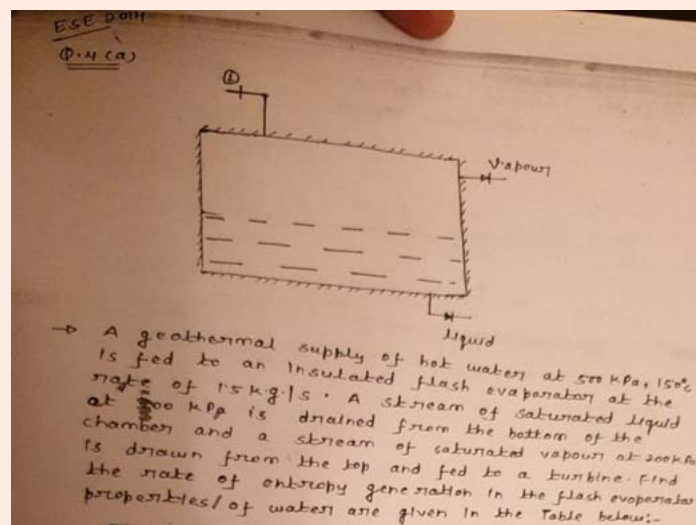 ESE 2014
Q.4 (a)
①
Vapour
liquid
→ A geothermal supply of hot water at 500 kPa, 150°c
is fed to an insulated flash evaporator at the
rate of 1.5 k.g./s. A stream of saturated liquid
at 200 kPa is drained from the bottom of the
chamber and a stream of saturated vapour at 200kPa
is drawn from the top and fed to a turbine. Find
the rate of entropy generation in the flash evoporator
properties/ of water are given in the Table below:-